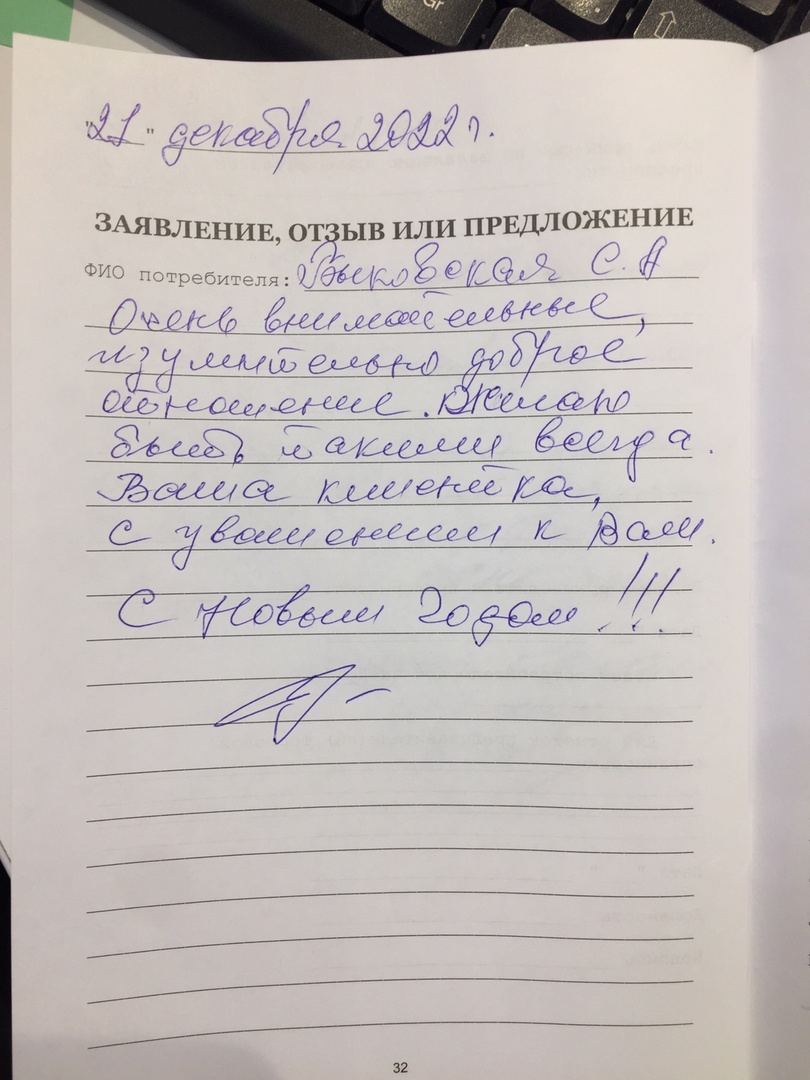 "21" декабря 2022 г.
ЗАЯВЛЕНИЕ, ОТЗЫВ ИЛИ ПРЕДЛОЖЕНИЕ
ФИО потребителя: Быковская С.А
Очень внимательные,
изумительно доброе
отношение. Желаю
быть такими всегда.
Ваша клиентка,
с уважением к Вам.
С Новым Годом!!!
32